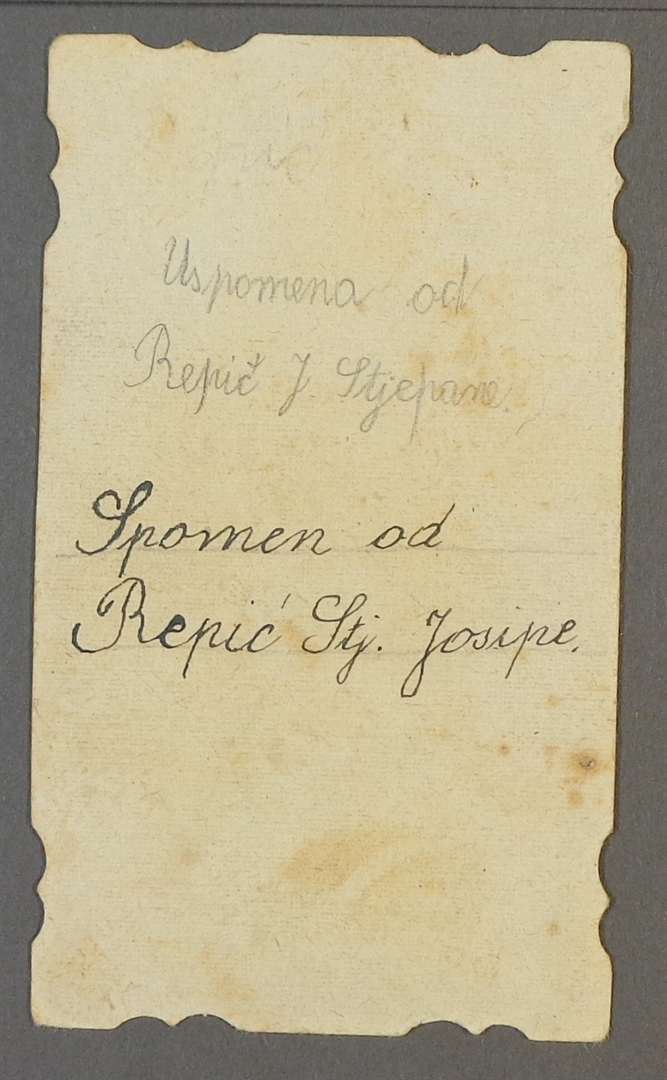 Uspomena od
Repić J. Stjepane.
Spomen od
Repić Stj. Josipe.